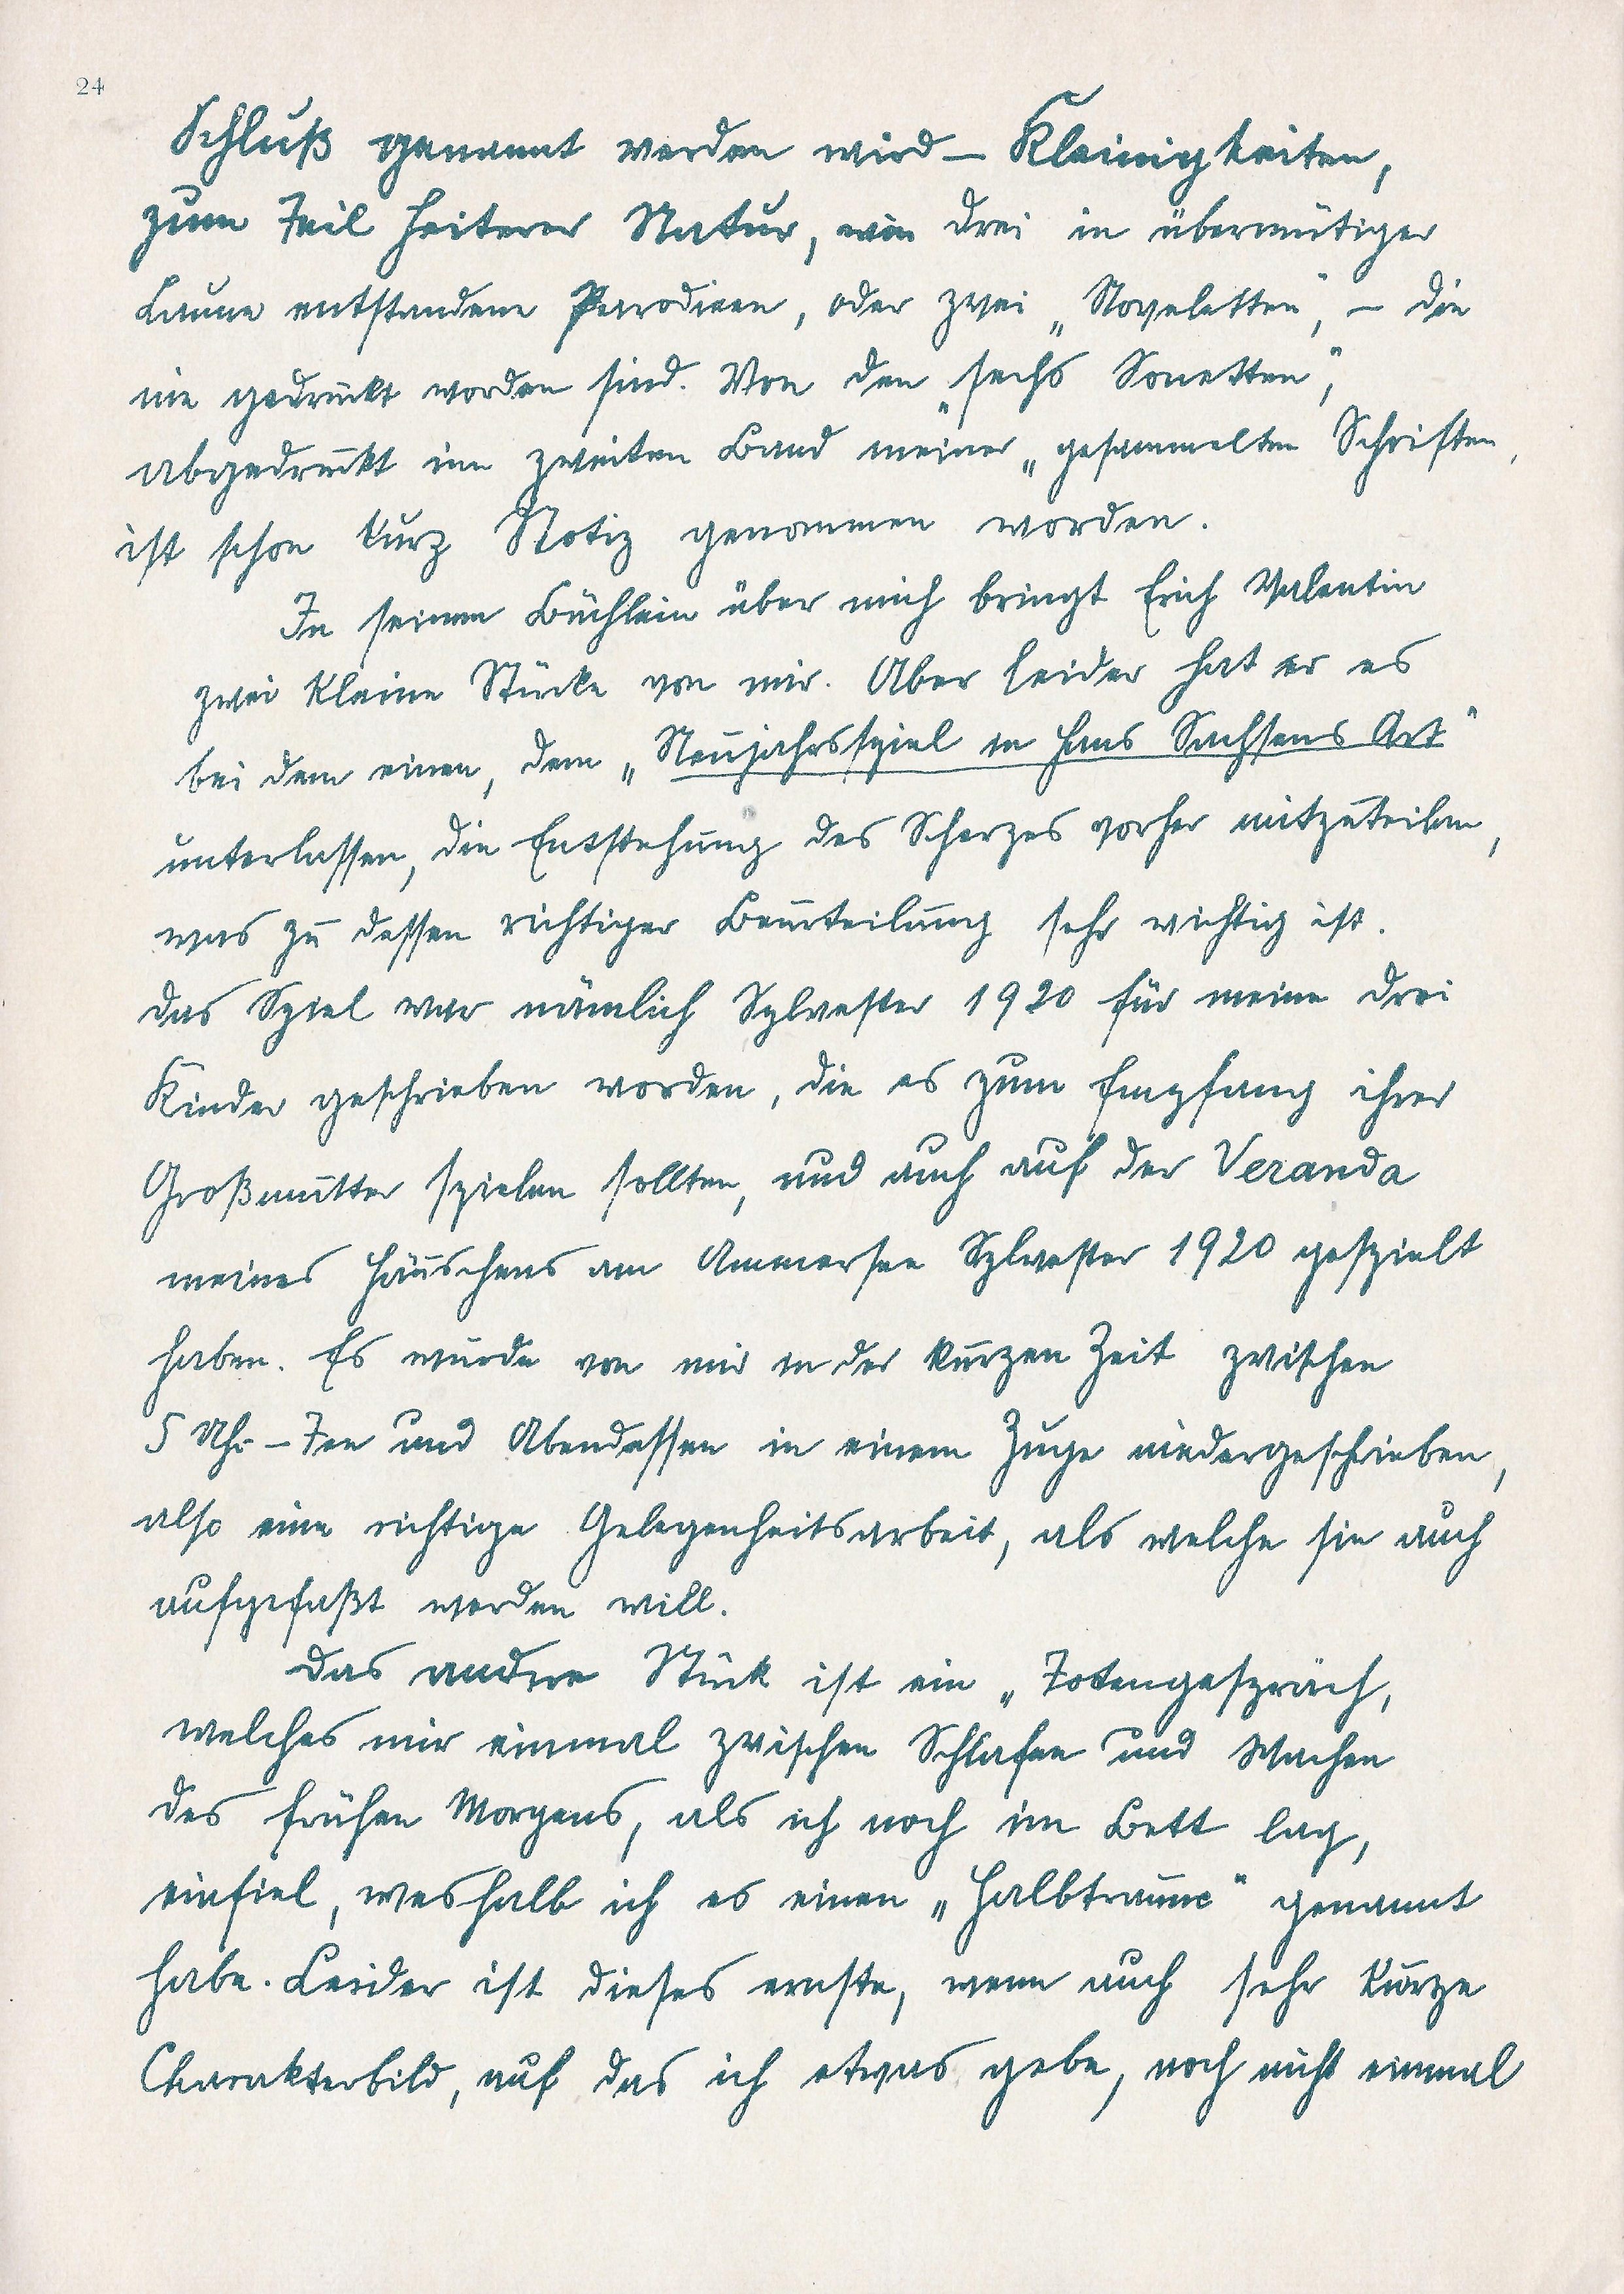 24
Schluß genannt werden wird — Kleinigkeiten,
zum Teil heiterer Natur, wie drei in übermütiger
Laune entstandene Parodieen, oder zwei „Noveletten", — die
nie gedruckt worden sind. Von den „sechs Sonetten",
abgedruckt im zweiten Band meiner „gesammelten Schriften,
ist schon kurz Notiz genommen worden.
In seinem Büchlein über mich bringt Erich Valentin
zwei kleine Stücke von mir. Aber leider hat er es
bei dem einen, dem „Neujahrsspiel in Hans Sachsens Art"
unterlassen, die Entstehung des Scherzes vorher mitzuteilen,
was zu dessen richtiger Beurteilung sehr wichtig ist.
Das Spiel war nämlich Sylvester 1920 für meine drei
Kinder geschrieben worden, die es zum Empfang ihrer
Großmutter spielen sollten, und auch auf der Veranda
meines Häuschens am Ammersee Sylvester 1920 gespielt
haben. Es wurde von mir in der kurzen Zeit zwischen
5 Uhr – Tee und Abendessen in einem Zuge niedergeschrieben,
also eine richtige Gelegenheitsarbeit, als welche sie auch
aufgefaßt werden will.
Das andere Stück ist ein „Totengespräch,
welches mir einmal zwischen Schlafen und Wachen
des frühen Morgens, als ich noch im Bett lag,
einfiel, weshalb ich es einen „Halbtraum" genannt
habe. Leider ist dieses ernste, wenn auch sehr kurze
Charakterbild, auf das ich etwas gebe, noch nicht einmal